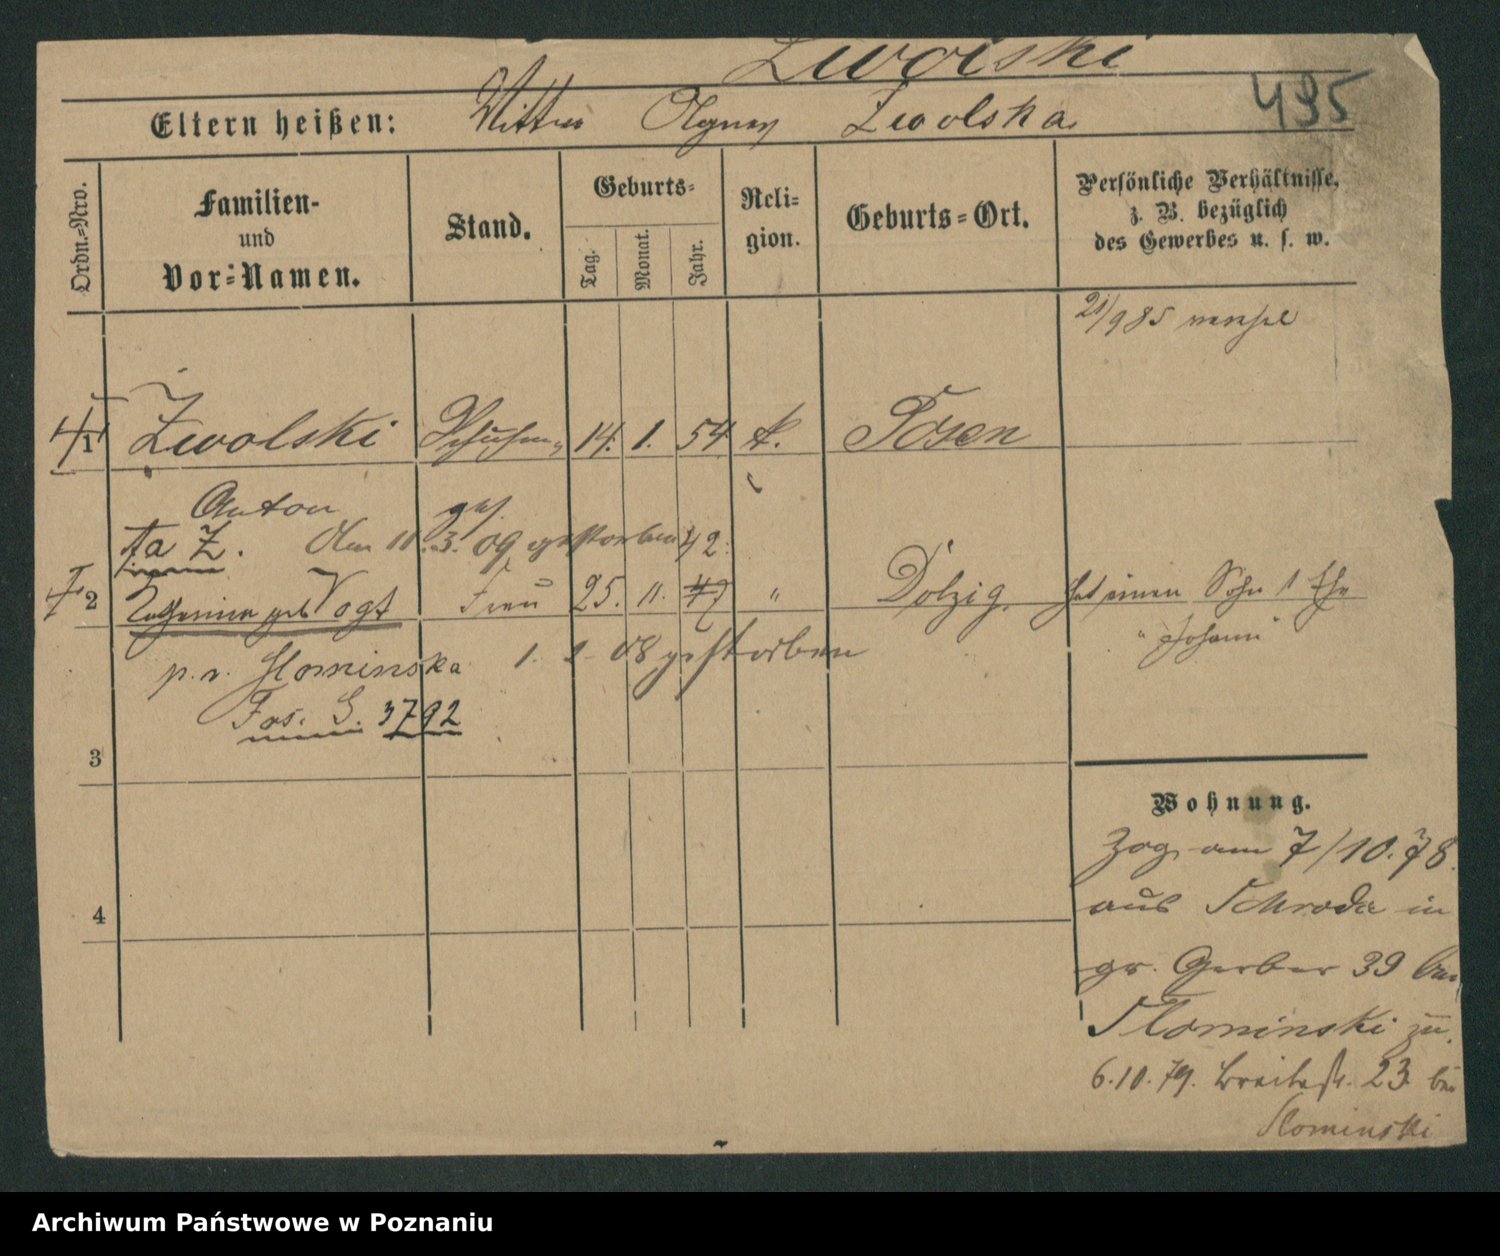 Zwolski
495
Eltern heißen: Agnes Zwolska
Ordn.=Nro.
Familien-
und
Vor=Namen.
Stand.
Geburts=
Tag.
Monat.
Jahr.
Reli=
gion.
Geburts=Ort.
Persönliche Verhältnisse,
z. B. bezüglich
des Gewerbes u. s. w.
21/9 85
1 Zwolski 14. 1. 54 k. Posen
Anton
Am 11. 3. 09 gestorben 42.
2 Catharina geb Vogt Frau 25. 11. 47 " Dolzig. hat einen Sohn 1 Ehe
"Johann"
p.v. Slominska 1. 2 08 gestorben
Fas. S. 3792
3
4
Wohnung.
Zog am 7/10. 78.
aus Schroda in
gr. Gerber 39 bei
Slominski zu.
6.10.79. Breitestr. 23 bei
Slominski
Archiwum Państwowe w Poznaniu